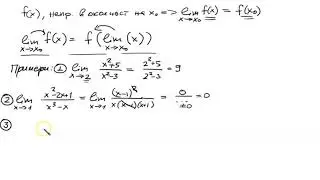 f(x), непр. в околност на x₀ => lim_{x→x₀} f(x) = f(x₀)
lim_{x→x₀} f(x) = f(lim_{x→x₀}(x))
Примери: ① lim_{x→2} (x²+5)/(x²-3) = (2²+5)/(2²-3) = 9
② lim_{x→1} (x²-2x+1)/(x³-x) = lim_{x→1} (x-1)²/(x(x-1)(x+1)) = 0/≠0 = 0
③